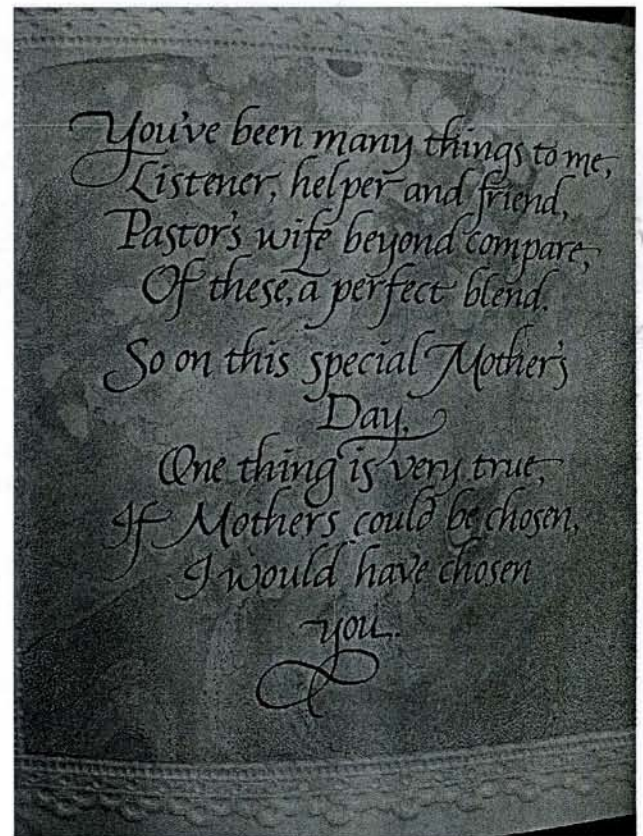 You've been many things to me,
Listener, helper and friend,
Pastor's wife beyond compare,
Of these, a perfect blend.
So on this special Mother's
Day,
One thing is very true,
If Mothers could be chosen,
I would have chosen
you.